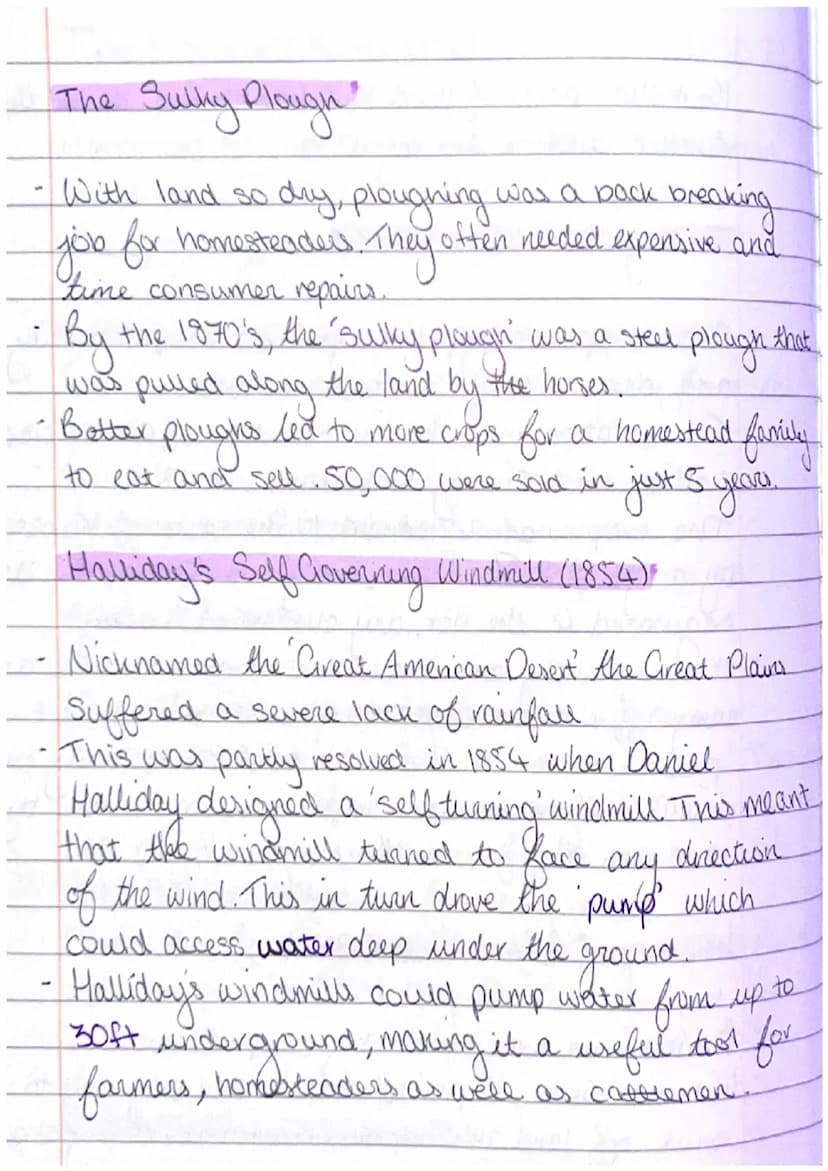 The Sulky Plough'
- With land so dry, ploughing was a back breaking
job for homesteaders. They often needed expensive and
time consumer repairs.
- By the 1870's, the 'sulky plough' was a steel plough that
was pulled along the land by the horses.
- Better ploughs led to more crops for a homestead family
to eat and sell. 50,000 were sold in just 5 years.
Halliday's Self Governing Windmill (1854)
- Nicknamed the 'Great American Desert' the Great Plains
Suffered a severe lack of rainfall
- This was partly resolved in 1854 when Daniel
Halliday designed a 'self turning' windmill. This meant
that the windmill turned to face any direction
of the wind. This in turn drove the 'pump' which
could access water deep under the ground.
- Halliday's windmills could pump water from up to
30ft underground, making it a useful tool for
farmers, homesteaders as well as cattlemen.